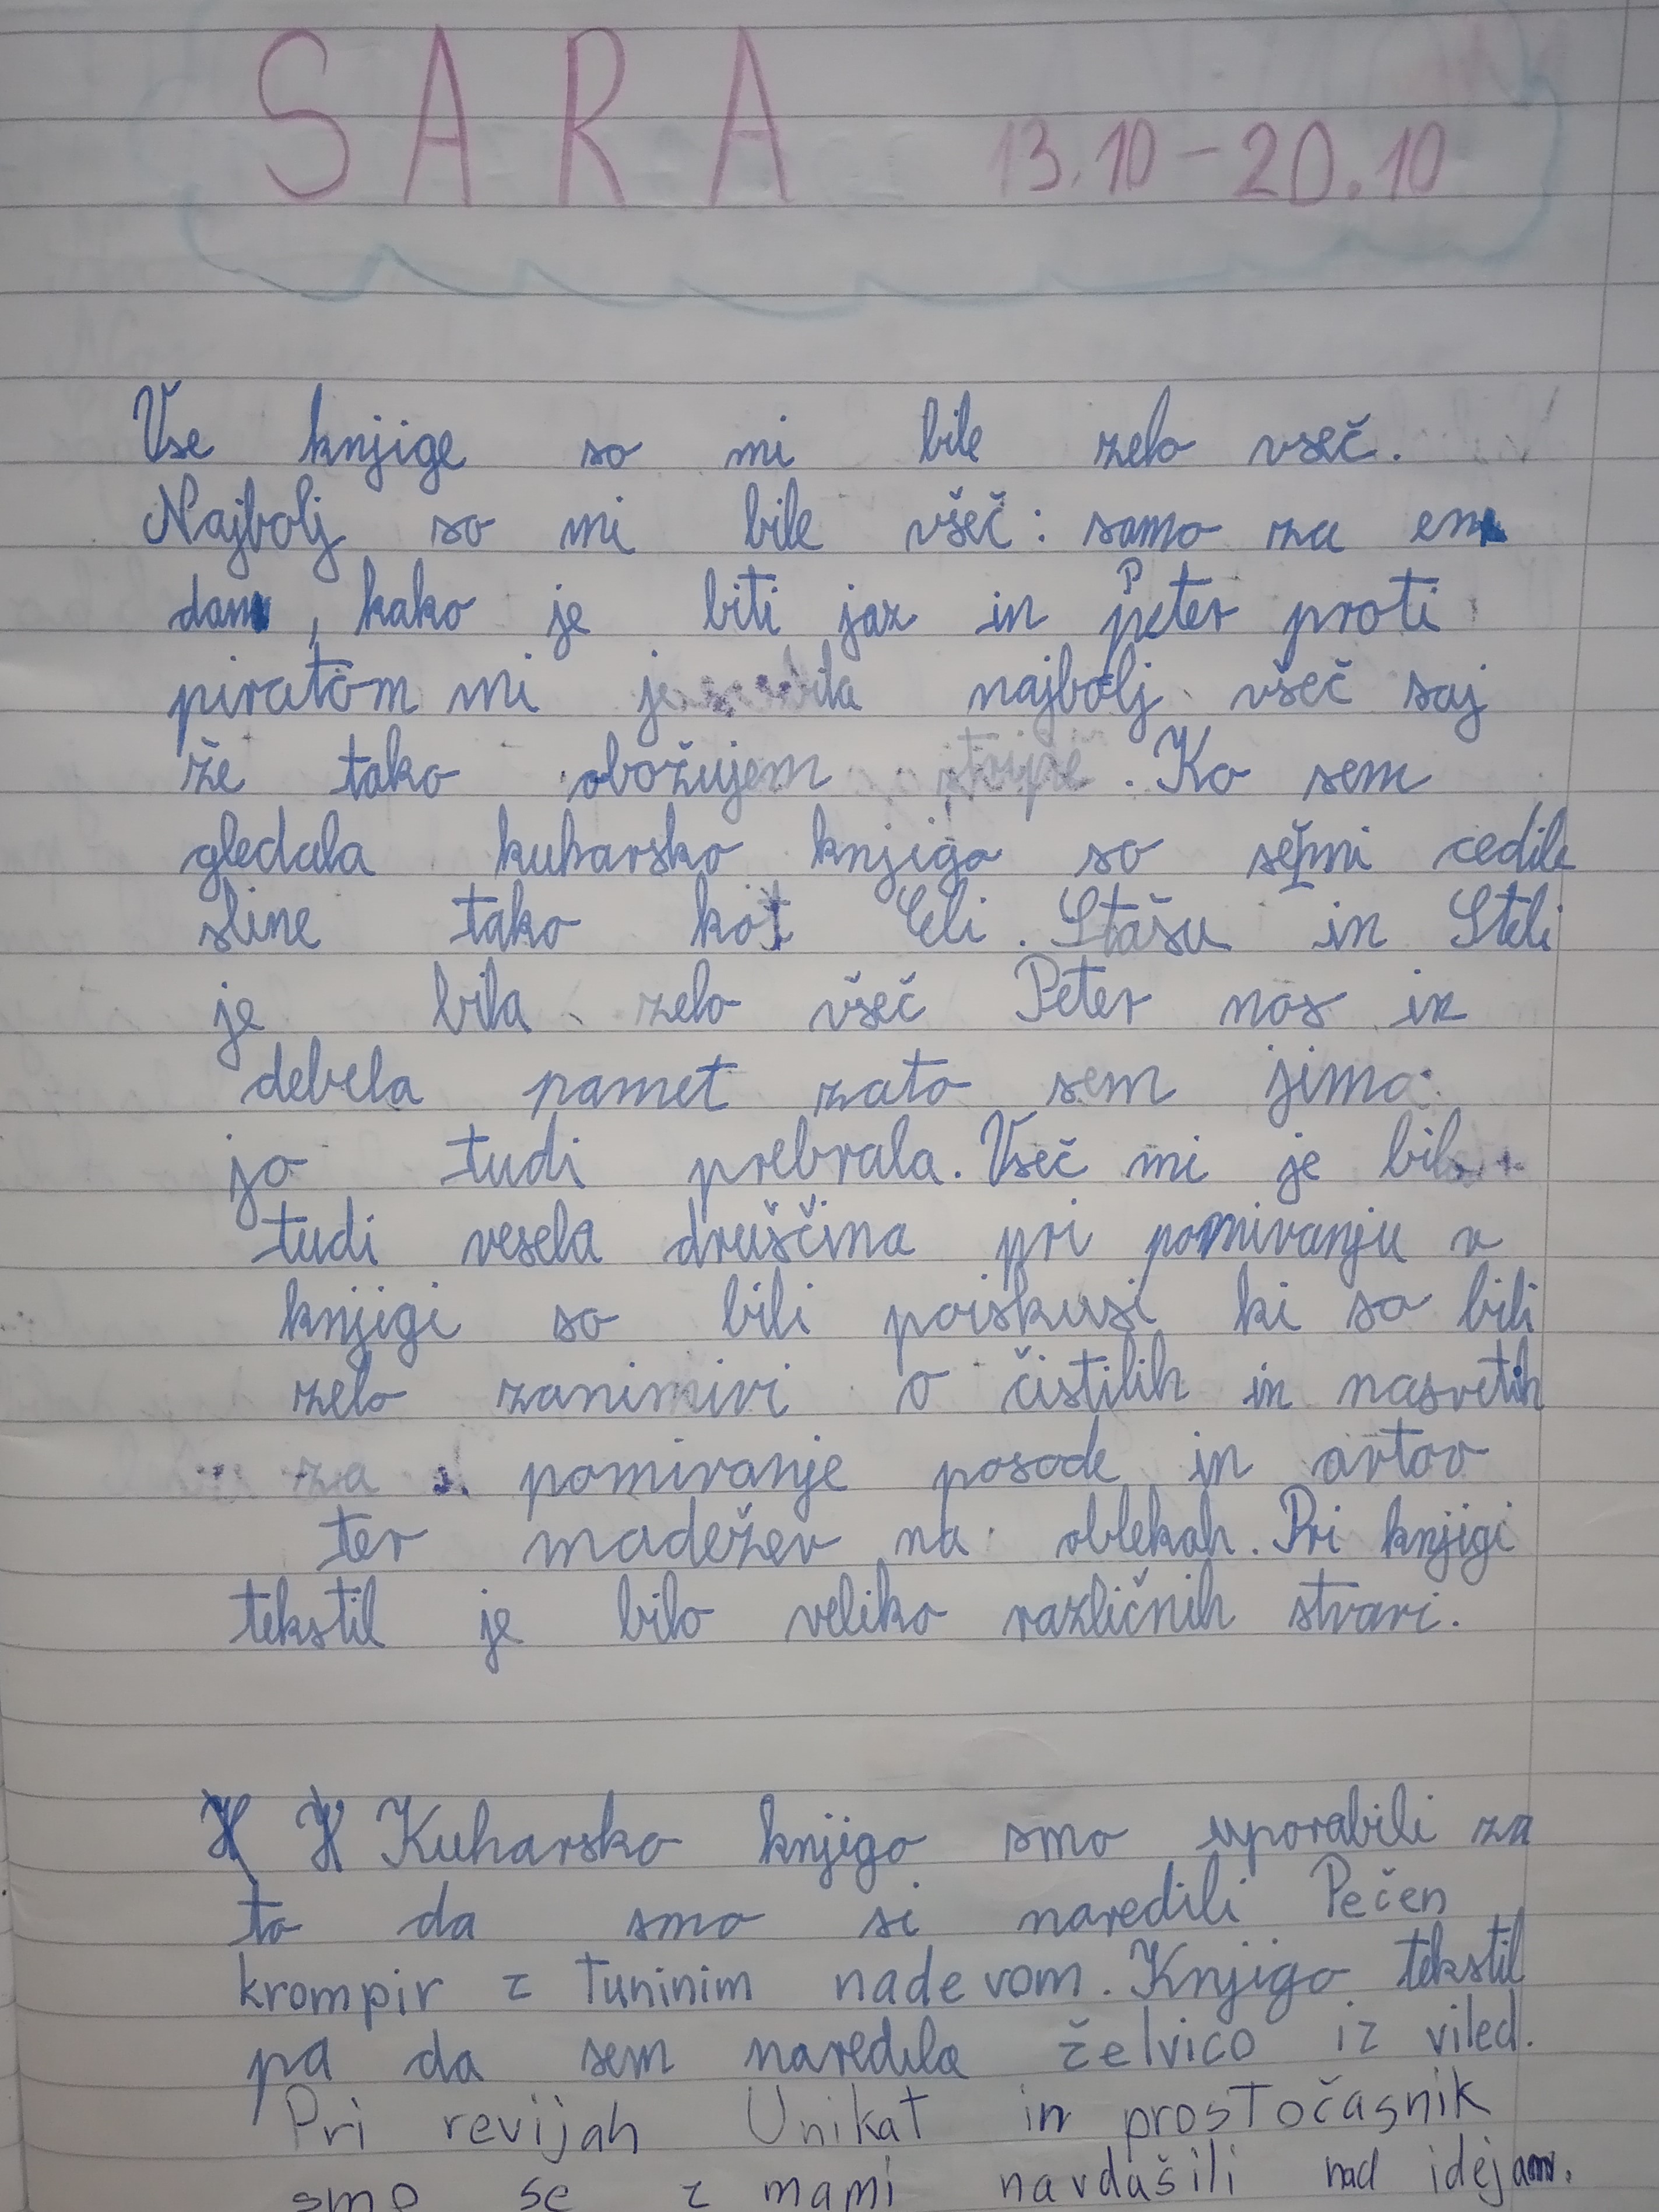 SARA 13.10-20.10
Vse knjige so mi bile zelo vseč.
Najbolj so mi bile všeč: samo za en
dan, kako je biti jaz in Peter proti
piratom mi je bila najbolj všeč saj
že tako obožujem stripe. Ko sem
gledala kuharsko knjigo so se mi cedile
sline tako kot Eli. Stašu in Steli
je bila zelo všeč Peter nos in
debela pamet zato sem jima
jo tudi prebrala. Všeč mi je bila
tudi vesela druščina pri pomivanju v
knjigi so bili poiskusi ki so bili
zelo zanimivi o čistilih in nasvetih
za pomivanje posode in avtov
ter madežev na oblekah. Pri knjigi
tekstil je bilo veliko različnih stvari.
Kuharsko knjigo smo uporabili za
to da smo si naredili Pečen
krompir z tuninim nadevom. Knjigo tekstil
pa da sem naredila želvico iz viled.
Pri revijah Unikat in prostočasnik
smo se z mami navdašili nad idejam.